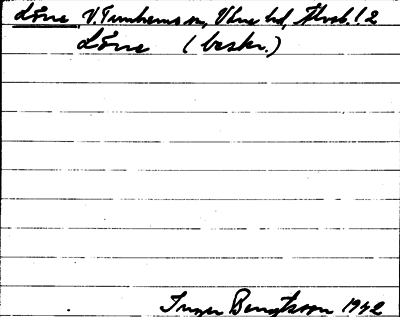 Löne V. Tunhems sn, Väne hd, Älvsb. l 2
Löne (beskr.)
Inger Bengtsson 1942